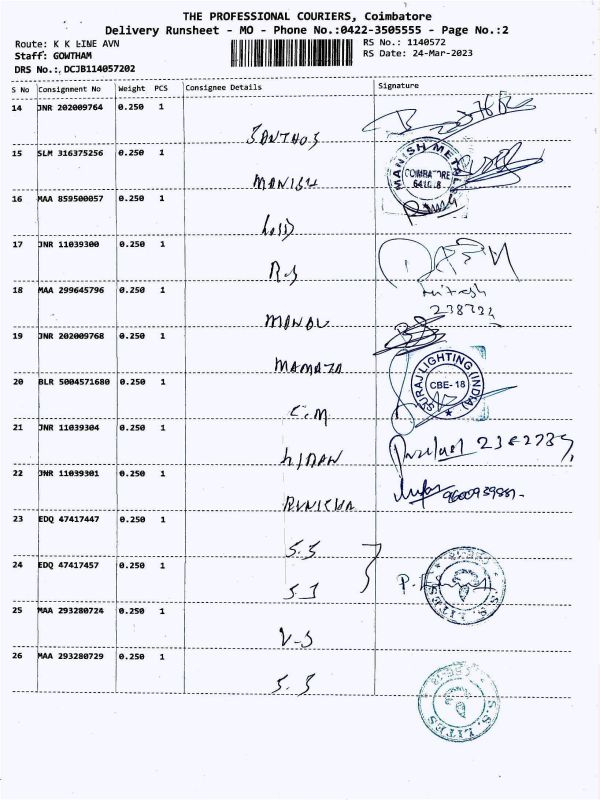 THE PROFESSIONAL COURIERS, Coimbatore
Delivery Runsheet - MO - Phone No.:0422-3505555 - Page No.:2
Route: K K LINE AVN
RS No.: 1140572
Staff: GOWTHAM
RS Date: 24-Mar-2023
DRS No.:, DCJB114057202
S No Consignment No Weight PCS Consignee Details Signature
14 JNR 202009764 0.250 1
SANTHOS
15 SLM 316375256 0.250 1
MANISH METAL
COIMBATORE
MANISH
16 MAA 859500057 0.250 1
17 JNR 11039300 0.250 1
R.S
18 MAA 299645796 0.250 1
MANAV
19 JNR 202009768 0.250 1
MAMATA
SURAJ LIGHTING (INDIA)
CBE-18
20 BLR 5004571680 0.250 1
C.M
21 JNR 11039304 0.250 1
22 JNR 11039301 0.250 1
23 EDQ 47417447 0.250 1
S.S
24 EDQ 47417457 0.250 1
S.S
S.S. LITES
25 MAA 293280724 0.250 1
V-S
26 MAA 293280729 0.250 1
S.S
S.S. LITES